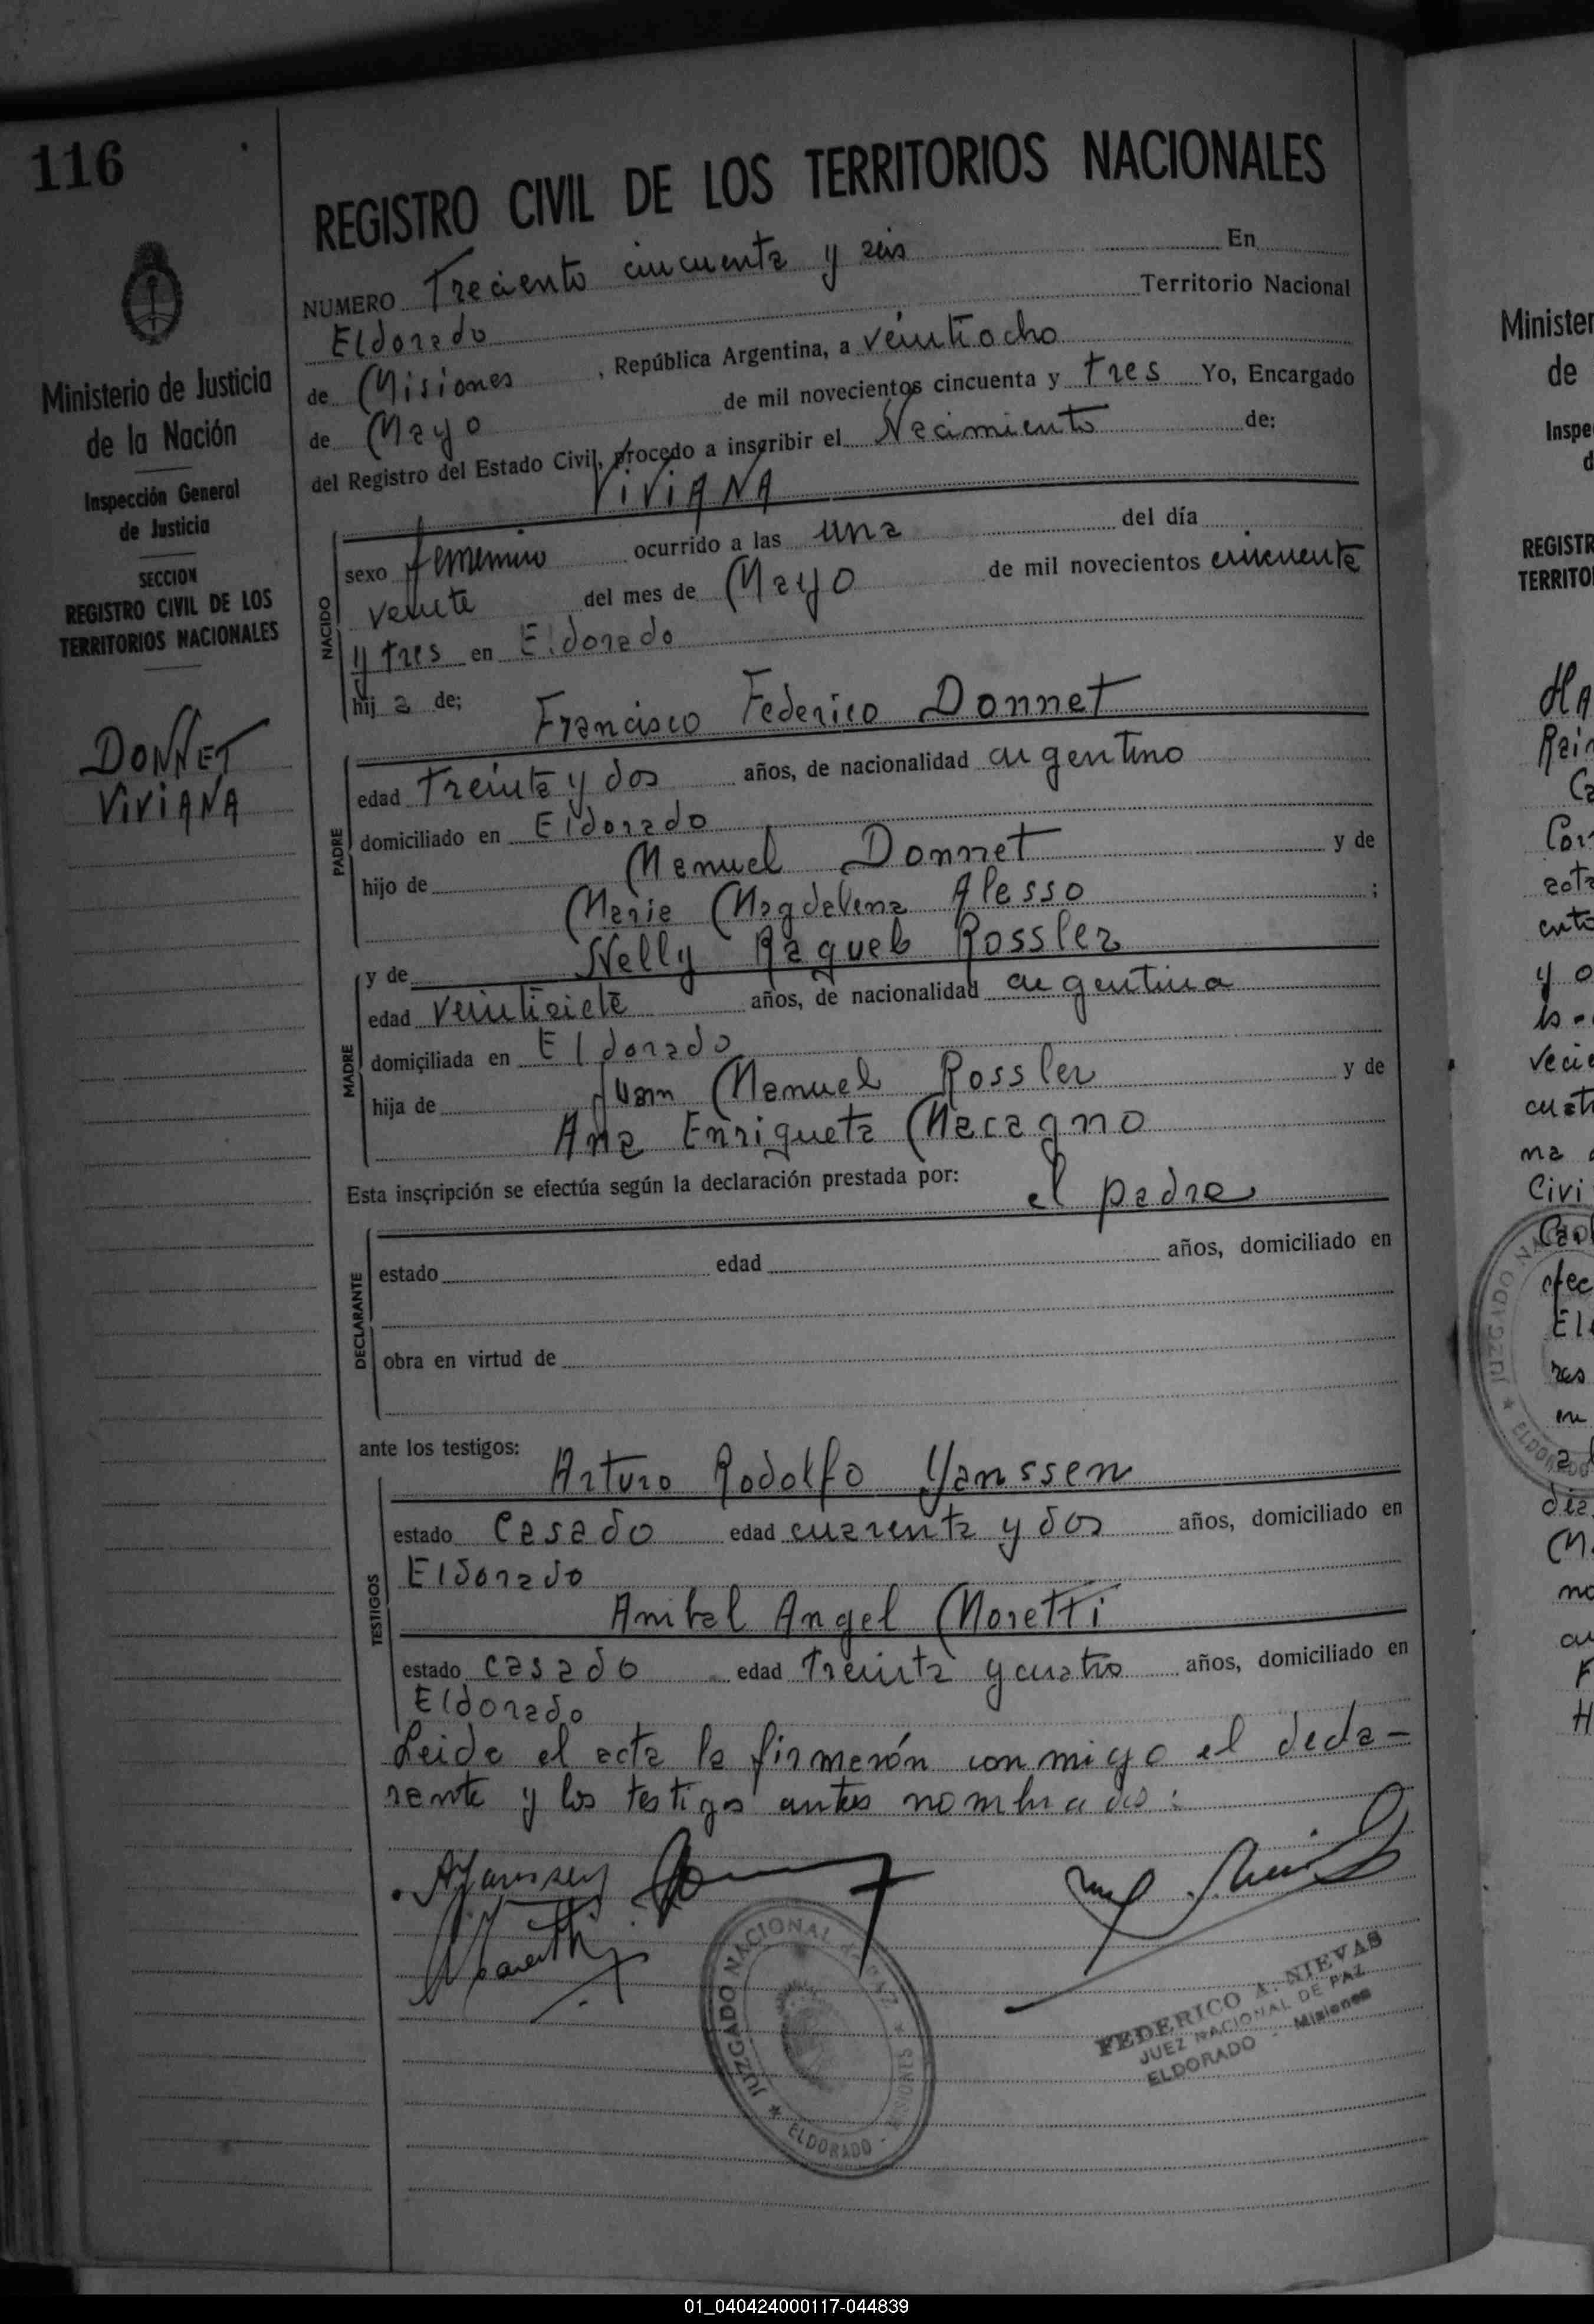 116
REGISTRO CIVIL DE LOS TERRITORIOS NACIONALES
NUMERO Treciento cincuenta y seis En
Eldorado Territorio Nacional
de Misiones, República Argentina, a veintiocho
de Mayo de mil novecientos cincuenta y tres Yo, Encargado
del Registro del Estado Civil, procedo a inscribir el Nacimiento de:
ViViANA
NACIDO
sexo femenino ocurrido a las una del día
veinte del mes de Mayo de mil novecientos cincuenta
y tres en Eldorado
hij a de;
Francisco Federico Donnet
PADRE
edad treinta y dos años, de nacionalidad argentino
domiciliado en Eldorado
hijo de Manuel Donnet y de
Maria Magdalena Alesso ;
y de Nelly Raquel Rossler
MADRE
edad veintisiete años, de nacionalidad argentina
domiciliada en Eldorado
hija de Juan Manuel Rossler y de
Ana Enriqueta Macagno
Esta inscripción se efectúa según la declaración prestada por: el padre
DECLARANTE
estado edad años, domiciliado en
obra en virtud de
ante los testigos:
Arturo Rodolfo Yanssen
TESTIGOS
estado casado edad cuarenta y dos años, domiciliado en
Eldorado
Anibal Angel Moretti
estado casado edad treinta y cuatro años, domiciliado en
Eldorado
Leida el acta la firmarón conmigo el decla-
rante y los testigos antes nombrados:
AYanssen
JUZGADO NACIONAL DE PAZ
ELDORADO - MISIONES
FEDERICO A. NIEVAS
JUEZ NACIONAL DE PAZ
ELDORADO - Misiones
Ministerio de Justicia
de la Nación
Inspección General
de Justicia
SECCION
REGISTRO CIVIL DE LOS
TERRITORIOS NACIONALES
DONNET
ViViANA
Minister
de
Inspe
d
REGISTR
TERRITO
JUZGADO NA
ELDORADO
01_040424000117-044839